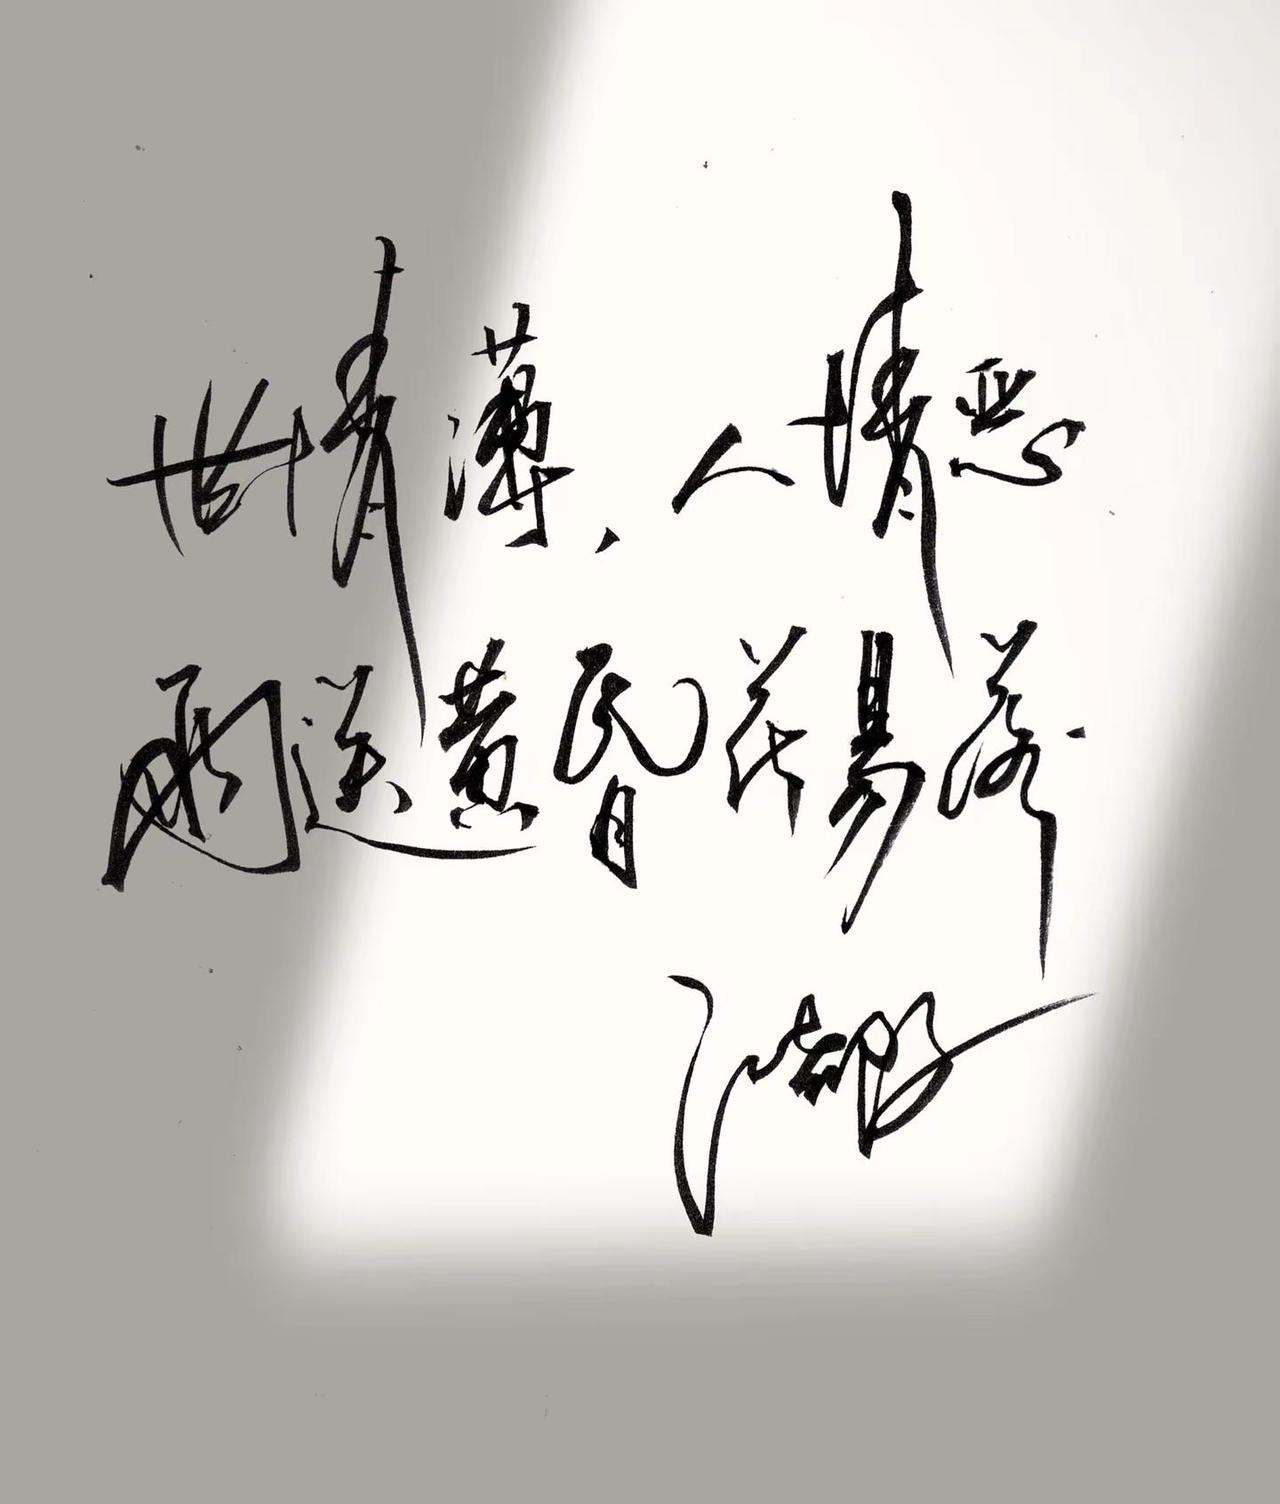 世情薄,人情恶
雨送黄昏花易落